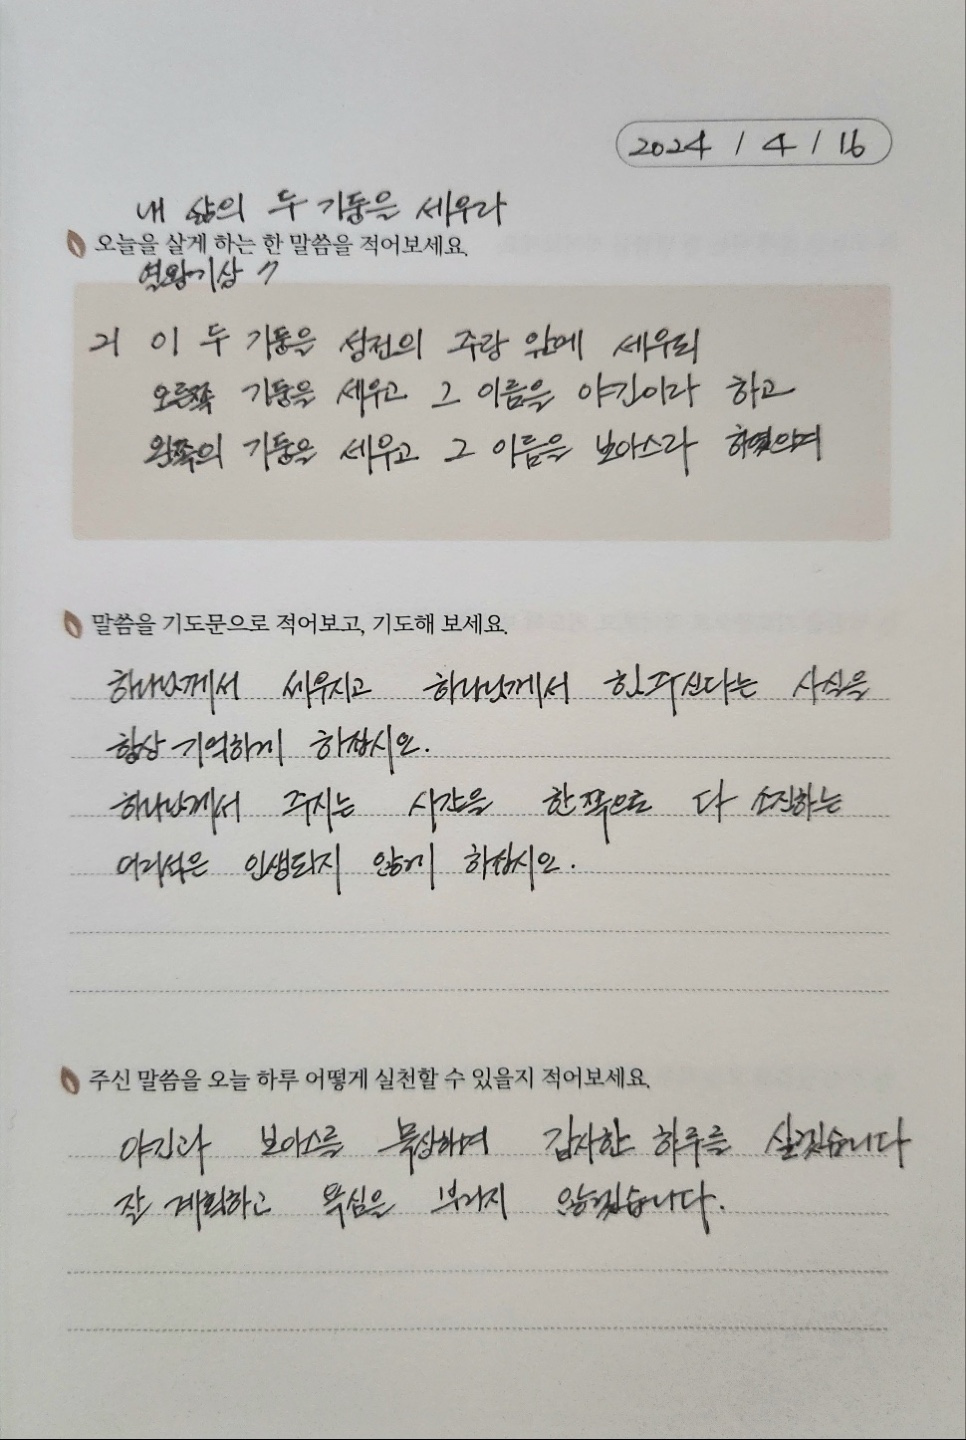 2024 / 4 / 16
내 삶의 두 기둥을 세우라
오늘을 살게 하는 한 말씀을 적어보세요.
열왕기상 7
21 이 두 기둥을 성전의 주랑 앞에 세우되
오른쪽 기둥을 세우고 그 이름을 야긴이라 하고
왼쪽의 기둥을 세우고 그 이름을 보아스라 하였으며
말씀을 기도문으로 적어보고, 기도해 보세요.
하나님께서 세우시고 하나님께서 힘주신다는 사실을
항상 기억하게 하십시오.
하나님께서 주시는 시간을 한쪽으로 다 소진하는
어리석은 인생되지 않게 하십시오.
주신 말씀을 오늘 하루 어떻게 실천할 수 있을지 적어보세요.
야긴과 보아스를 묵상하며 감사한 하루를 살겠습니다
잘 계획하고 욕심을 부리지 않겠습니다.